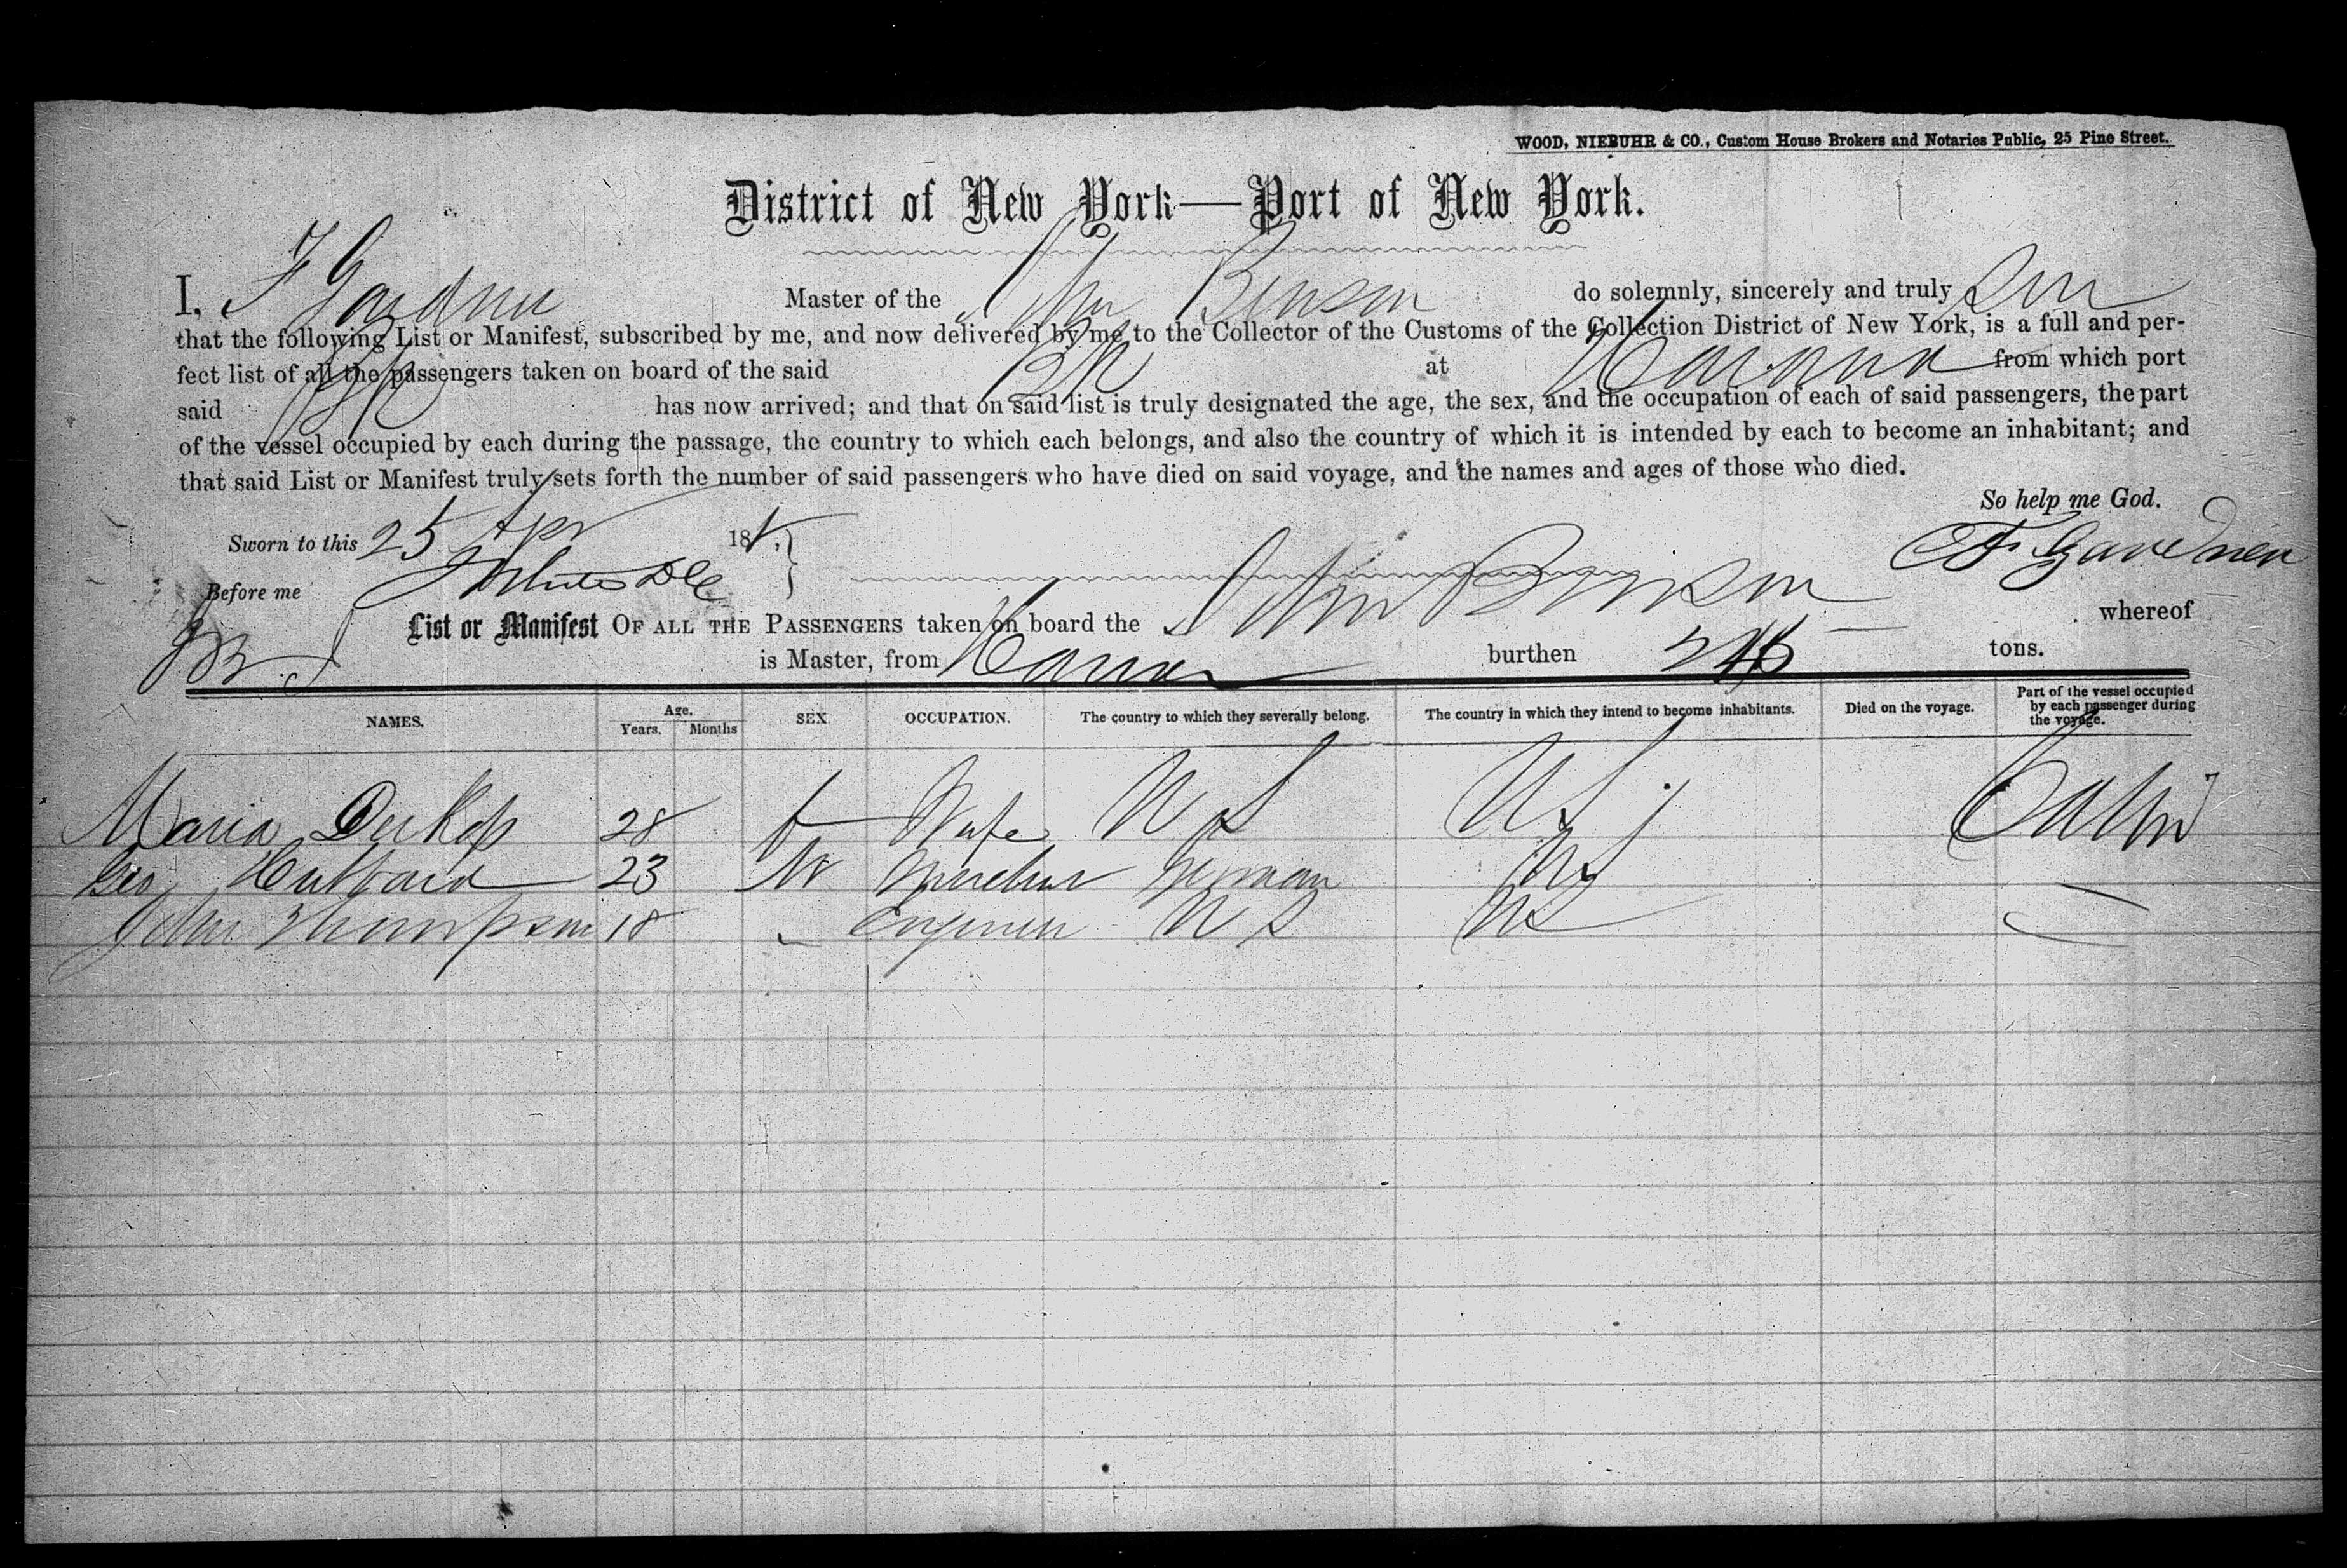 WOOD, NIEBUHR & CO., Custom House Brokers and Notaries Public, 25 Pine Street.
District of New York—Port of New York.
I, F Gardner Master of the John Benson do solemnly, sincerely and truly
that the following List or Manifest, subscribed by me, and now delivered by me to the Collector of the Customs of the Collection District of New York, is a full and per-
fect list of all the passengers taken on board of the said Bk at Havana from which port
said Bk has now arrived; and that on said list is truly designated the age, the sex, and the occupation of each of said passengers, the part
of the vessel occupied by each during the passage, the country to which each belongs, and also the country of which it is intended by each to become an inhabitant; and
that said List or Manifest truly sets forth the number of said passengers who have died on said voyage, and the names and ages of those who died.
So help me God.
Sworn to this 25 Apr 18 F. Gardner
Before me
List or Manifest OF ALL THE PASSENGERS taken on board the John Benson whereof
is Master, from Havana burthen tons.
NAMES. Age. Years. Months SEX. OCCUPATION. The country to which they severally belong. The country in which they intend to become inhabitants. Died on the voyage. Part of the vessel occupied by each passenger during the voyage.
Maria 28 f Wife U S U S Cabin
Geo Hubbard 23 M German US
John Thompson 18 Engineer U S US